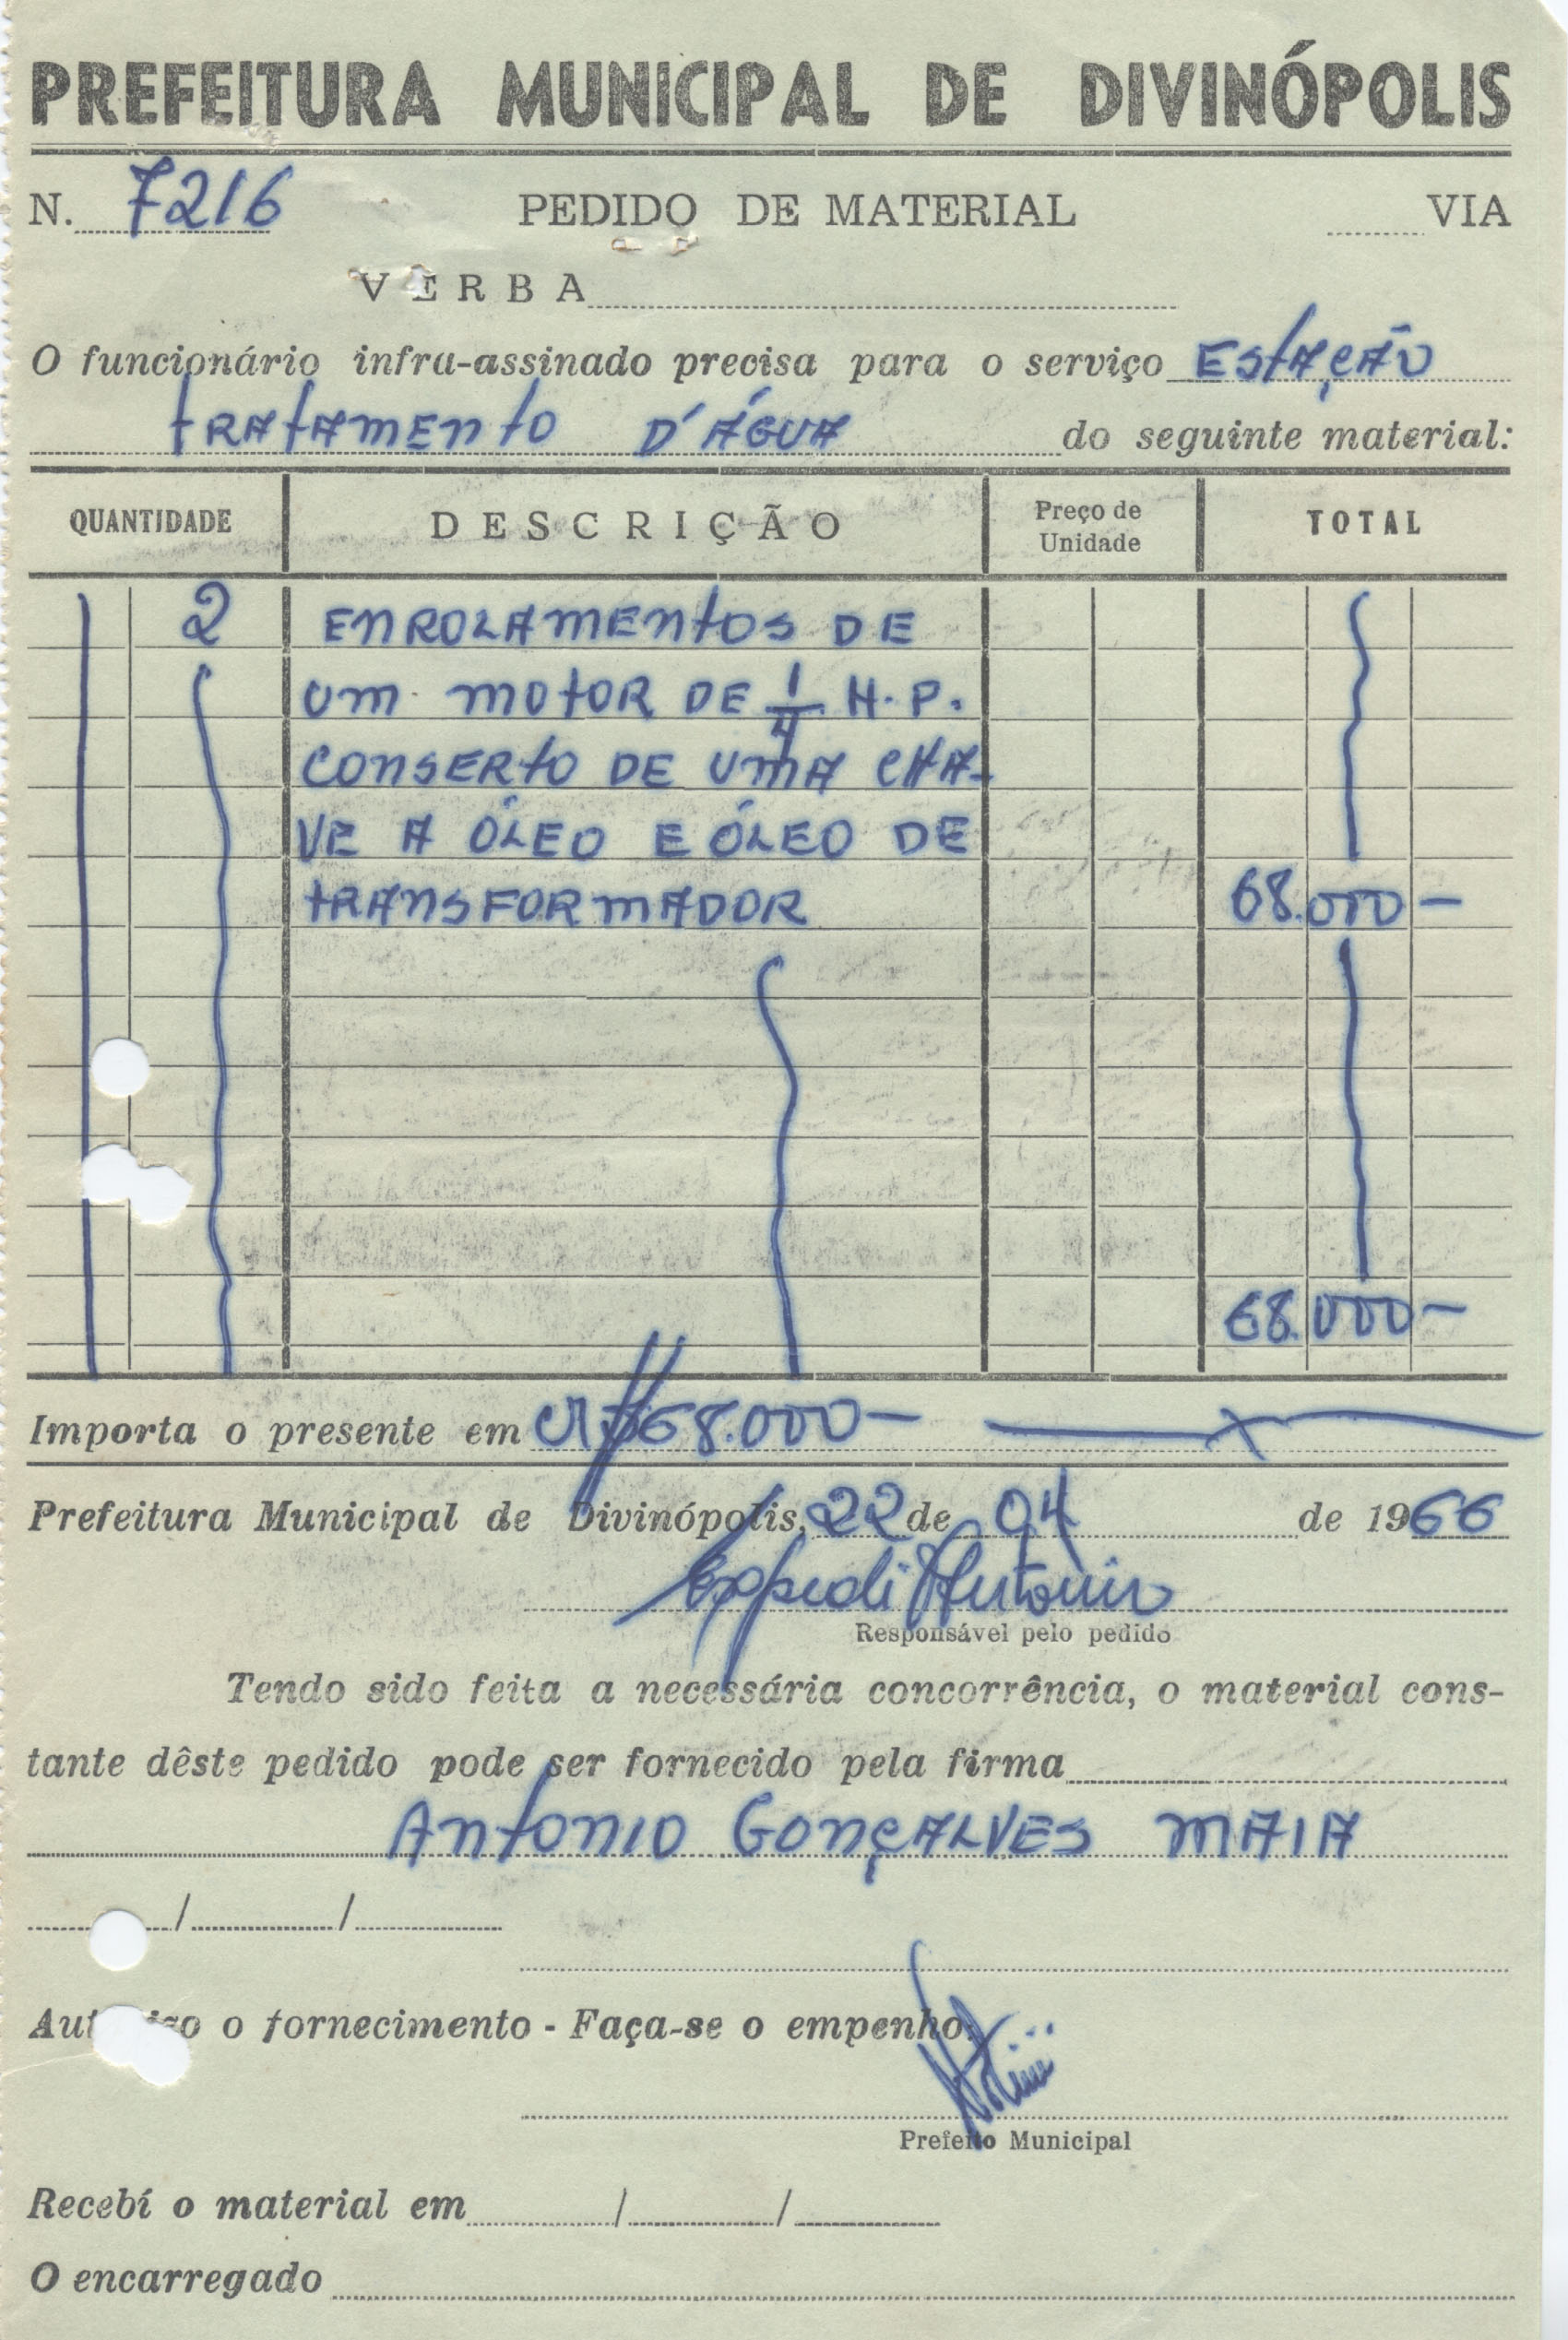 PREFEITURA MUNICIPAL DE DIVINÓPOLIS
N. 7216 PEDIDO DE MATERIAL VIA
VERBA
O funcionário infra-assinado precisa para o serviço Estação
tratamento D'ÁGUA do seguinte material:
QUANTIDADE DESCRIÇÃO Preço de Unidade TOTAL
2 ENROLAMENTOS DE
UM MOTOR DE 1/4 H.P.
CONSERTO DE UMA CHA-
VE A ÓLEO E ÓLEO DE
TRANSFORMADOR 68.000-
68.000-
Importa o presente em CR$68.000-
Prefeitura Municipal de Divinópolis, 22 de 04 de 1966
Responsável pelo pedido
Tendo sido feita a necessária concorrência, o material cons-
tante dêste pedido pode ser fornecido pela firma
ANTONIO GONÇALVES MAIA
/ /
o fornecimento - Faça-se o empenho.
Prefeito Municipal
Recebí o material em / /
O encarregado